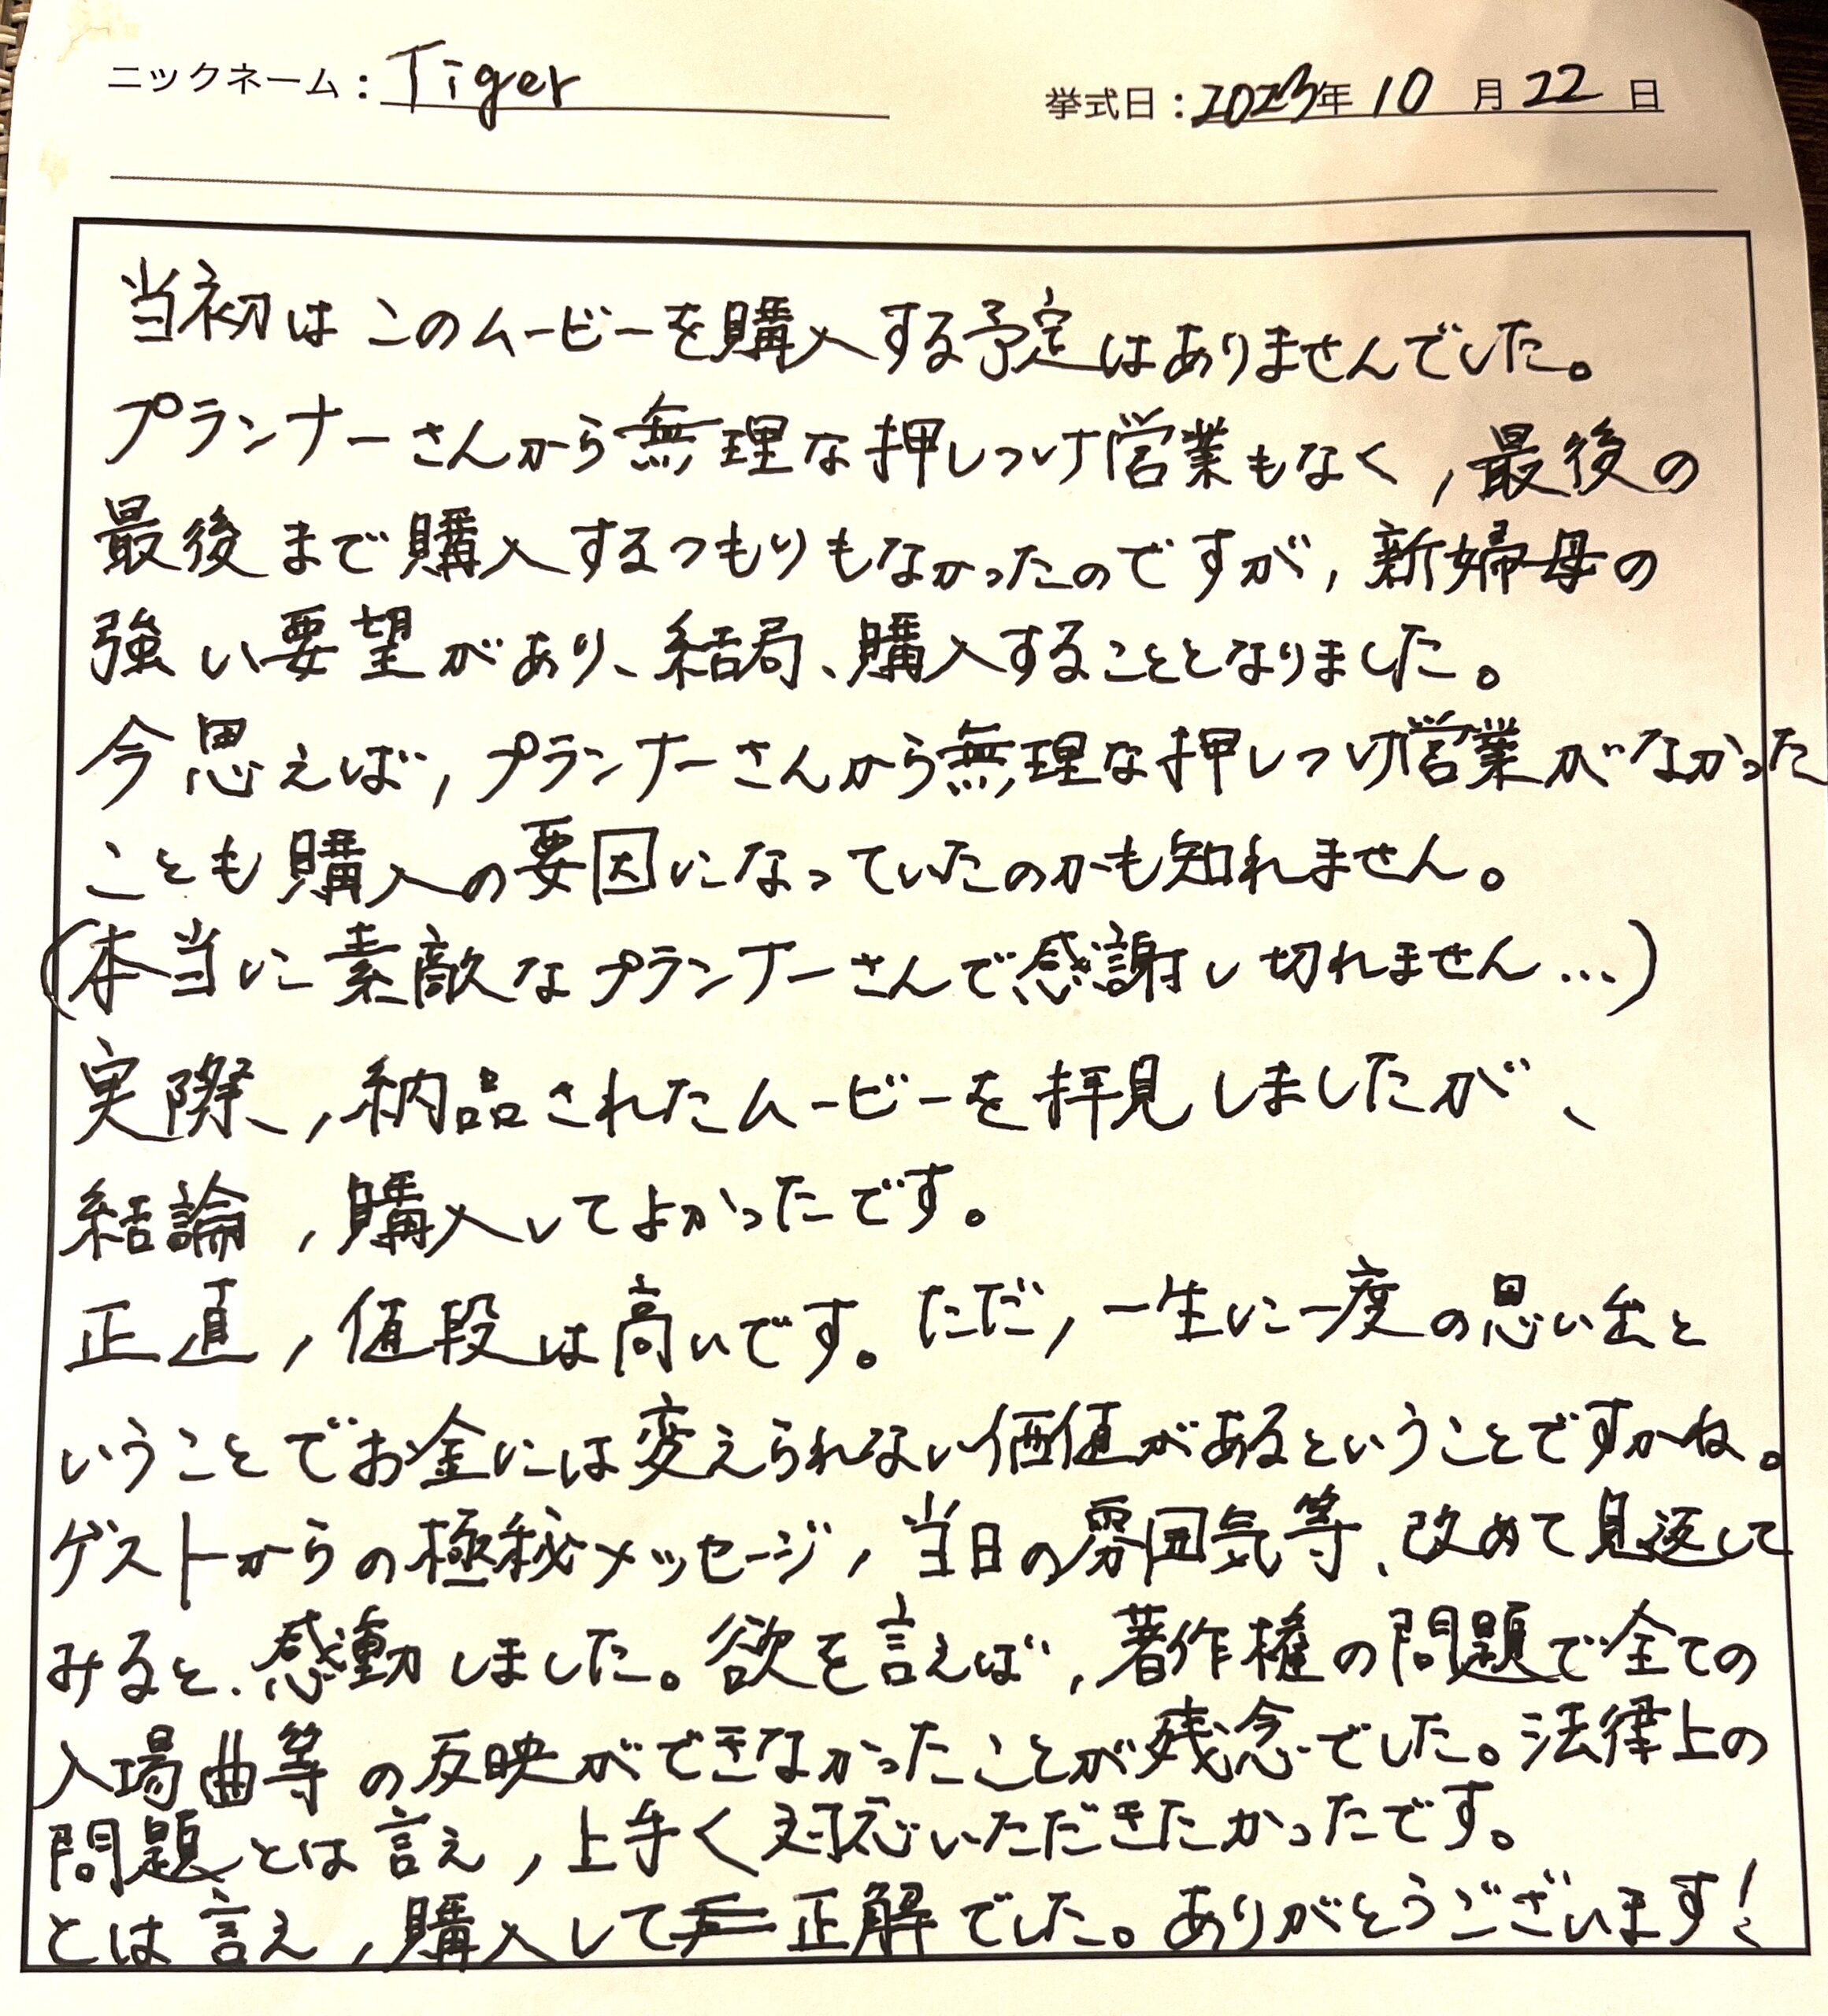 ニックネーム：Tiger
挙式日：2023年10月22日
当初はこのムービーを購入する予定はありませんでした。
プランナーさんから無理な押しつけ営業もなく，最後の
最後まで購入するつもりもなかったのですが，新婦母の
強い要望があり、結局、購入することとなりました。
今思えば，プランナーさんから無理な押しつけ営業がなかった
ことも購入の要因になっていたのかも知れません。
(本当に素敵なプランナーさんで感謝し切れません…)
実際，納品されたムービーを拝見しましたが、
結論，購入してよかったです。
正直，値段は高いです。ただ，一生に一度の思い出と
いうことでお金には変えられない価値があるということですかね。
ゲストからの極秘メッセージ，当日の雰囲気等、改めて見返して
みると、感動しました。欲を言えば，著作権の問題で全ての
入場曲等の反映ができなかったことが残念でした。法律上の
問題とは言え，上手く対応いただきたかったです。
とは言え，購入して正解でした。ありがとうございます！